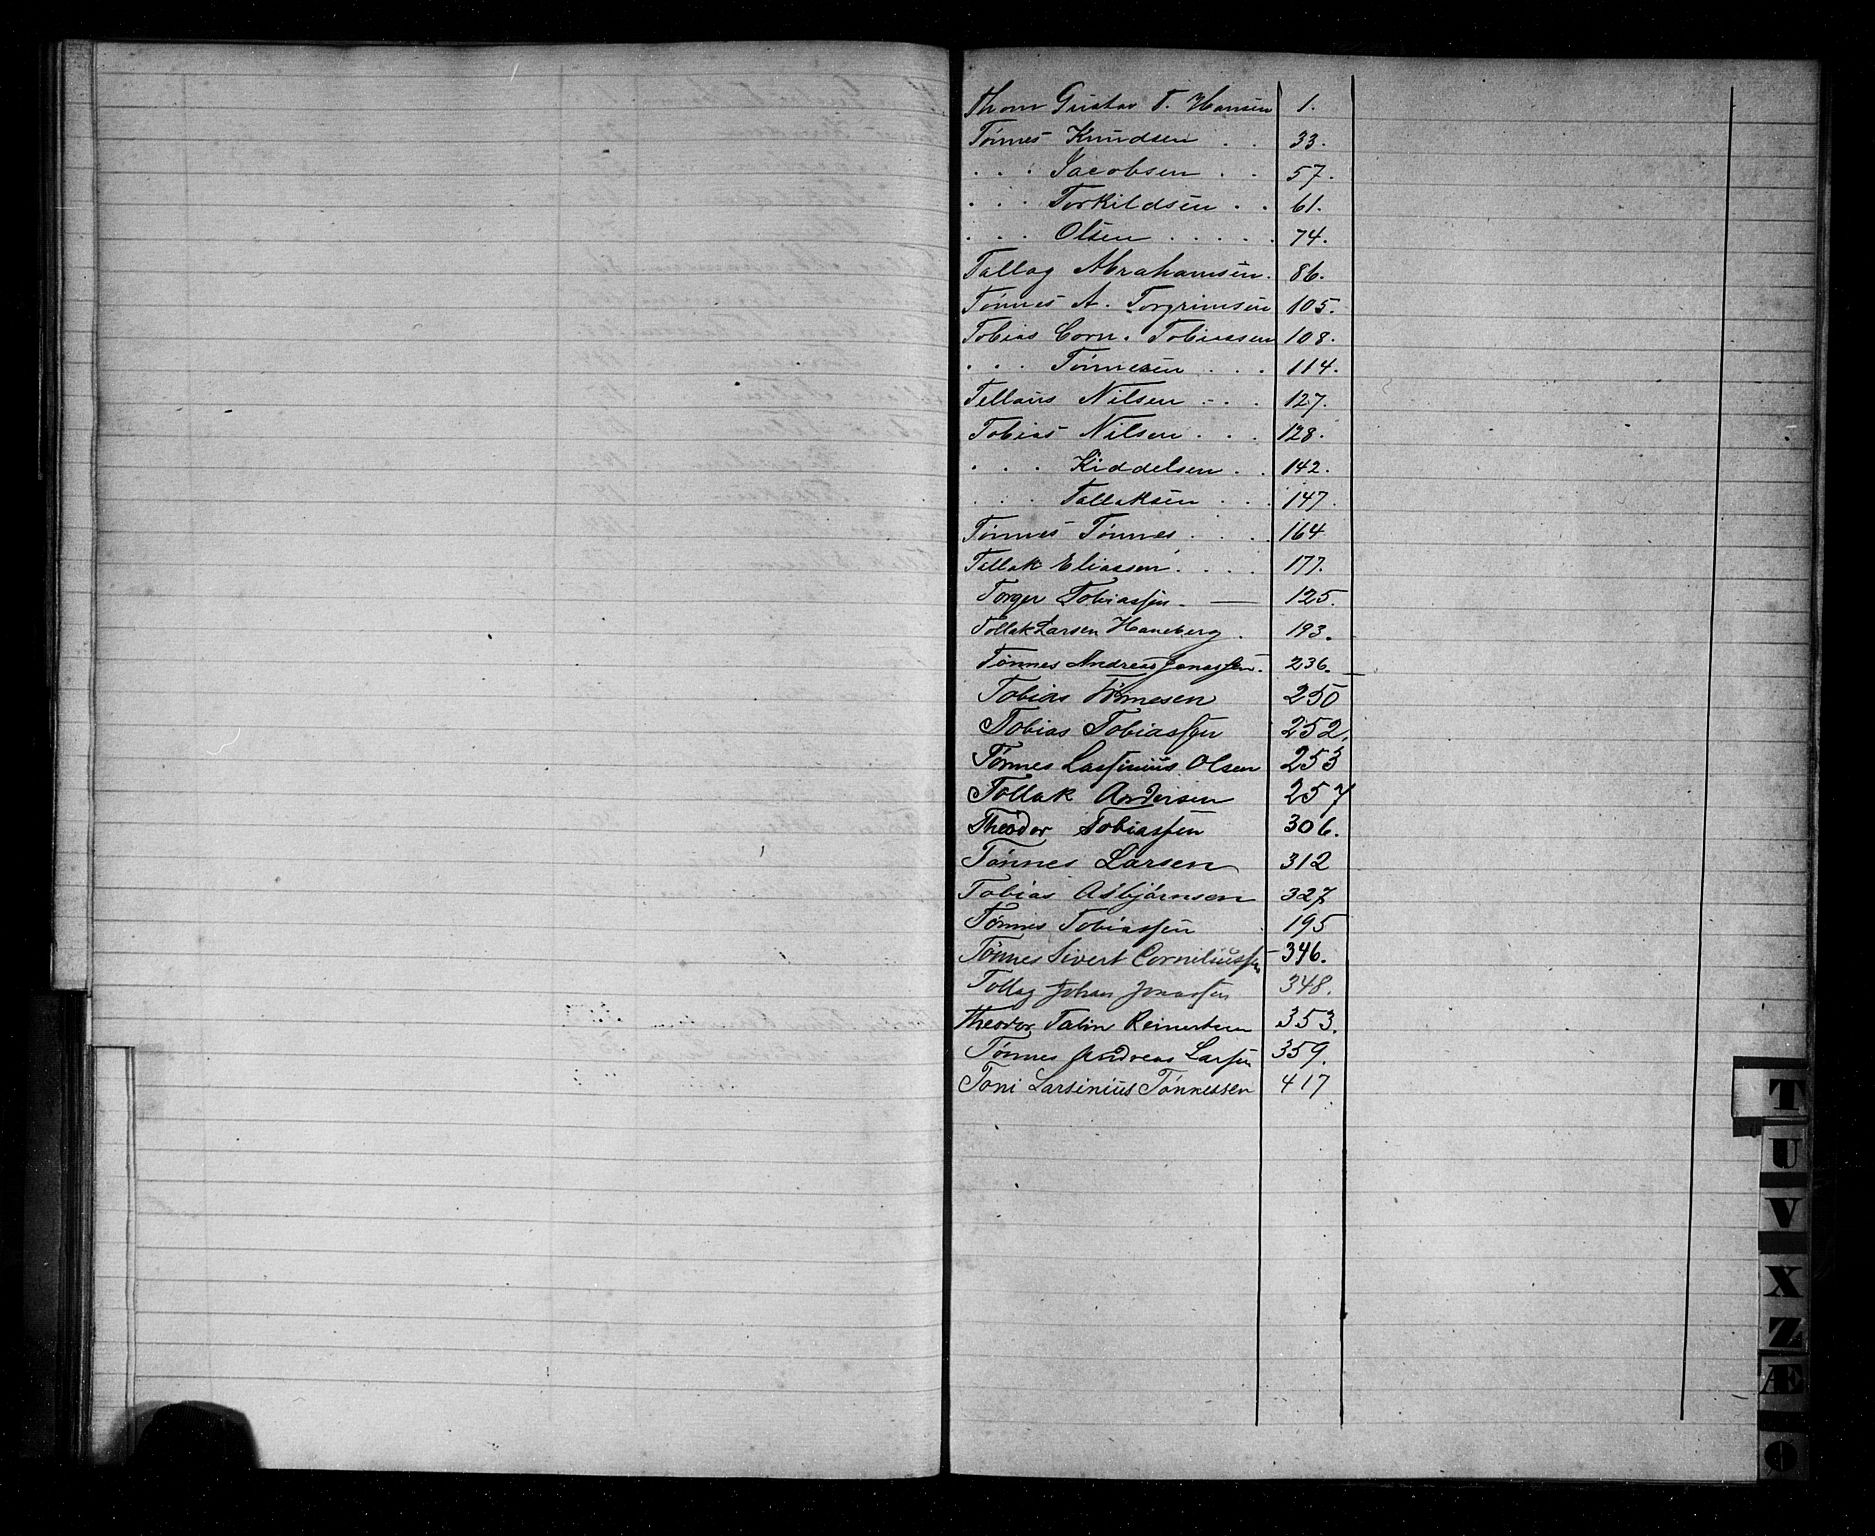 Thom Gustav T. Hansen 1.
Tønnes Knudsen . . 33.
. . . Jacobsen . . 57.
. . . Torkildsen . . 61.
. . . Olsen . . . . . 74.
Tallag Abrahamsen. 86.
Tønnes A. Torgrimsen 105.
Tobias Corn. Tobiassen 108.
. . . Tønnesen . . . 114.
Tellaus Nilsen - . . 127.
Tobias Nilsen . . . 128.
. . . Kiddelsen . . 142.
. . . Tallaksen . . . 147.
Tønnes Tønnes . . . 164
Tallak Eliassen . . . . 177.
Torger Tobiassen. — 125.
Tollak Larsen Haneberg . 193.
Tønnes Andreas Jonassen. 236.
Tobias Tønnesen 250
Tobias Tobiassen 252.
Tønnes Lassinius Olsen 253
Tollak Andersen 257
Theodor Tobiassen 306.
Tønnes Larsen 312
Tobias Asbjørnsen 327
Tønnes Tobiassen 195
Tønnes Sivert Corneliussen - 346.
Tollag Johan Jonassen 348.
Theodor Talin Reinertsen 353.
Tønnes Andreas Larsen 359.
Toni Larsinius Tønnessen 417
T
U
V
X
Z
Æ
Ø